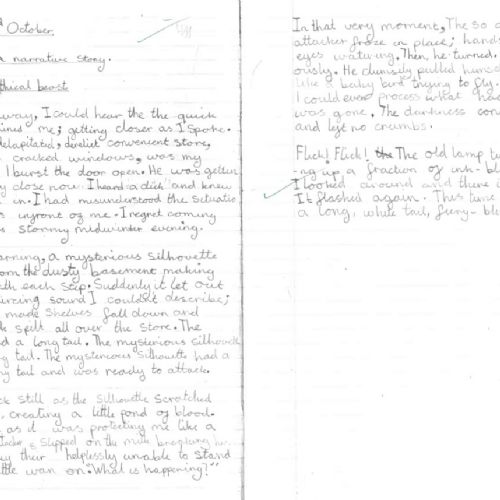 October.
a narrative story.
thical beast
way, I could hear the the quick
me; getting closer as I spoke.
delapitated, derelict convenient store,
cracked windows, was my
I burst the door open. He was gettin
ly close now. I heard a click and knew
in. I had misunderstood the situatio
infront of me. I regret coming
stormy midwinter evening.
arning, a mysterious silhouette
om the dusty basement making
th each step. Suddenly it let out
urcing sound I couldn't describe;
made shelves fall down and
k spill all over the store. The
d a long tail. The mysterious silhouet
g tail. The mysterious silhouette had a
ny tail and was ready to attack.
ck still as the silhouette scratched
creating a little pond of blood.
as it was protecting me like a
tacker slipped on the milk breaking his
ay their helplessly unable to stand
ttle wan on. "What is happening?"
In that very moment, The so c
attacker froze in place; hands
eyes watering. Then, he turned.
ously. He clumsily pulled himsel
like a baby bird trying to fly.
I could even process what had
was gone. The darkness con
and left no crumbs.
Flick! Flick! The old lamp tu
ng up a fraction of ink-bl
I looked around and there
It flashed again. This tune
a long, white tail, fiery-ble